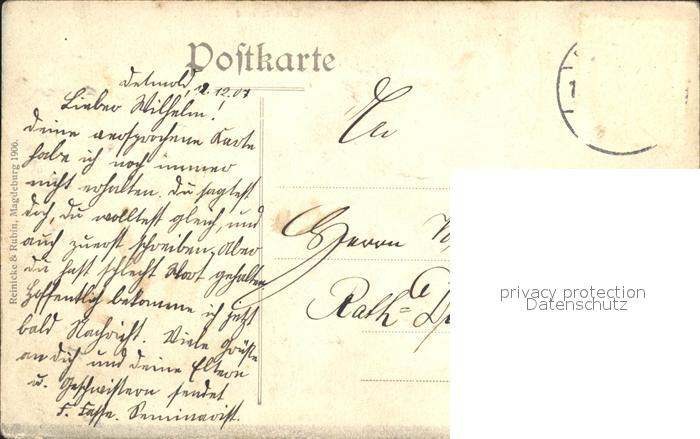 Postkarte
Detmold, 2.12.07
Lieber Wilhelm!
Deine versprochene Karte
habe ich noch immer
nicht erhalten. Du sagtest
doch, Du wolltest gleich, und
auch zuerst schreiben, Aber
du hast schlecht Wort gehalten
Hoffentlich bekomme ich jetzt
bald Nachricht. Viele Grüße
an dich und deine Eltern
u. Geschwistern sendet
F. Seminarist.
An
Herrn W
Rath=
Reinicke & Rubin, Magdeburg 1906.
privacy protection
Datenschutz